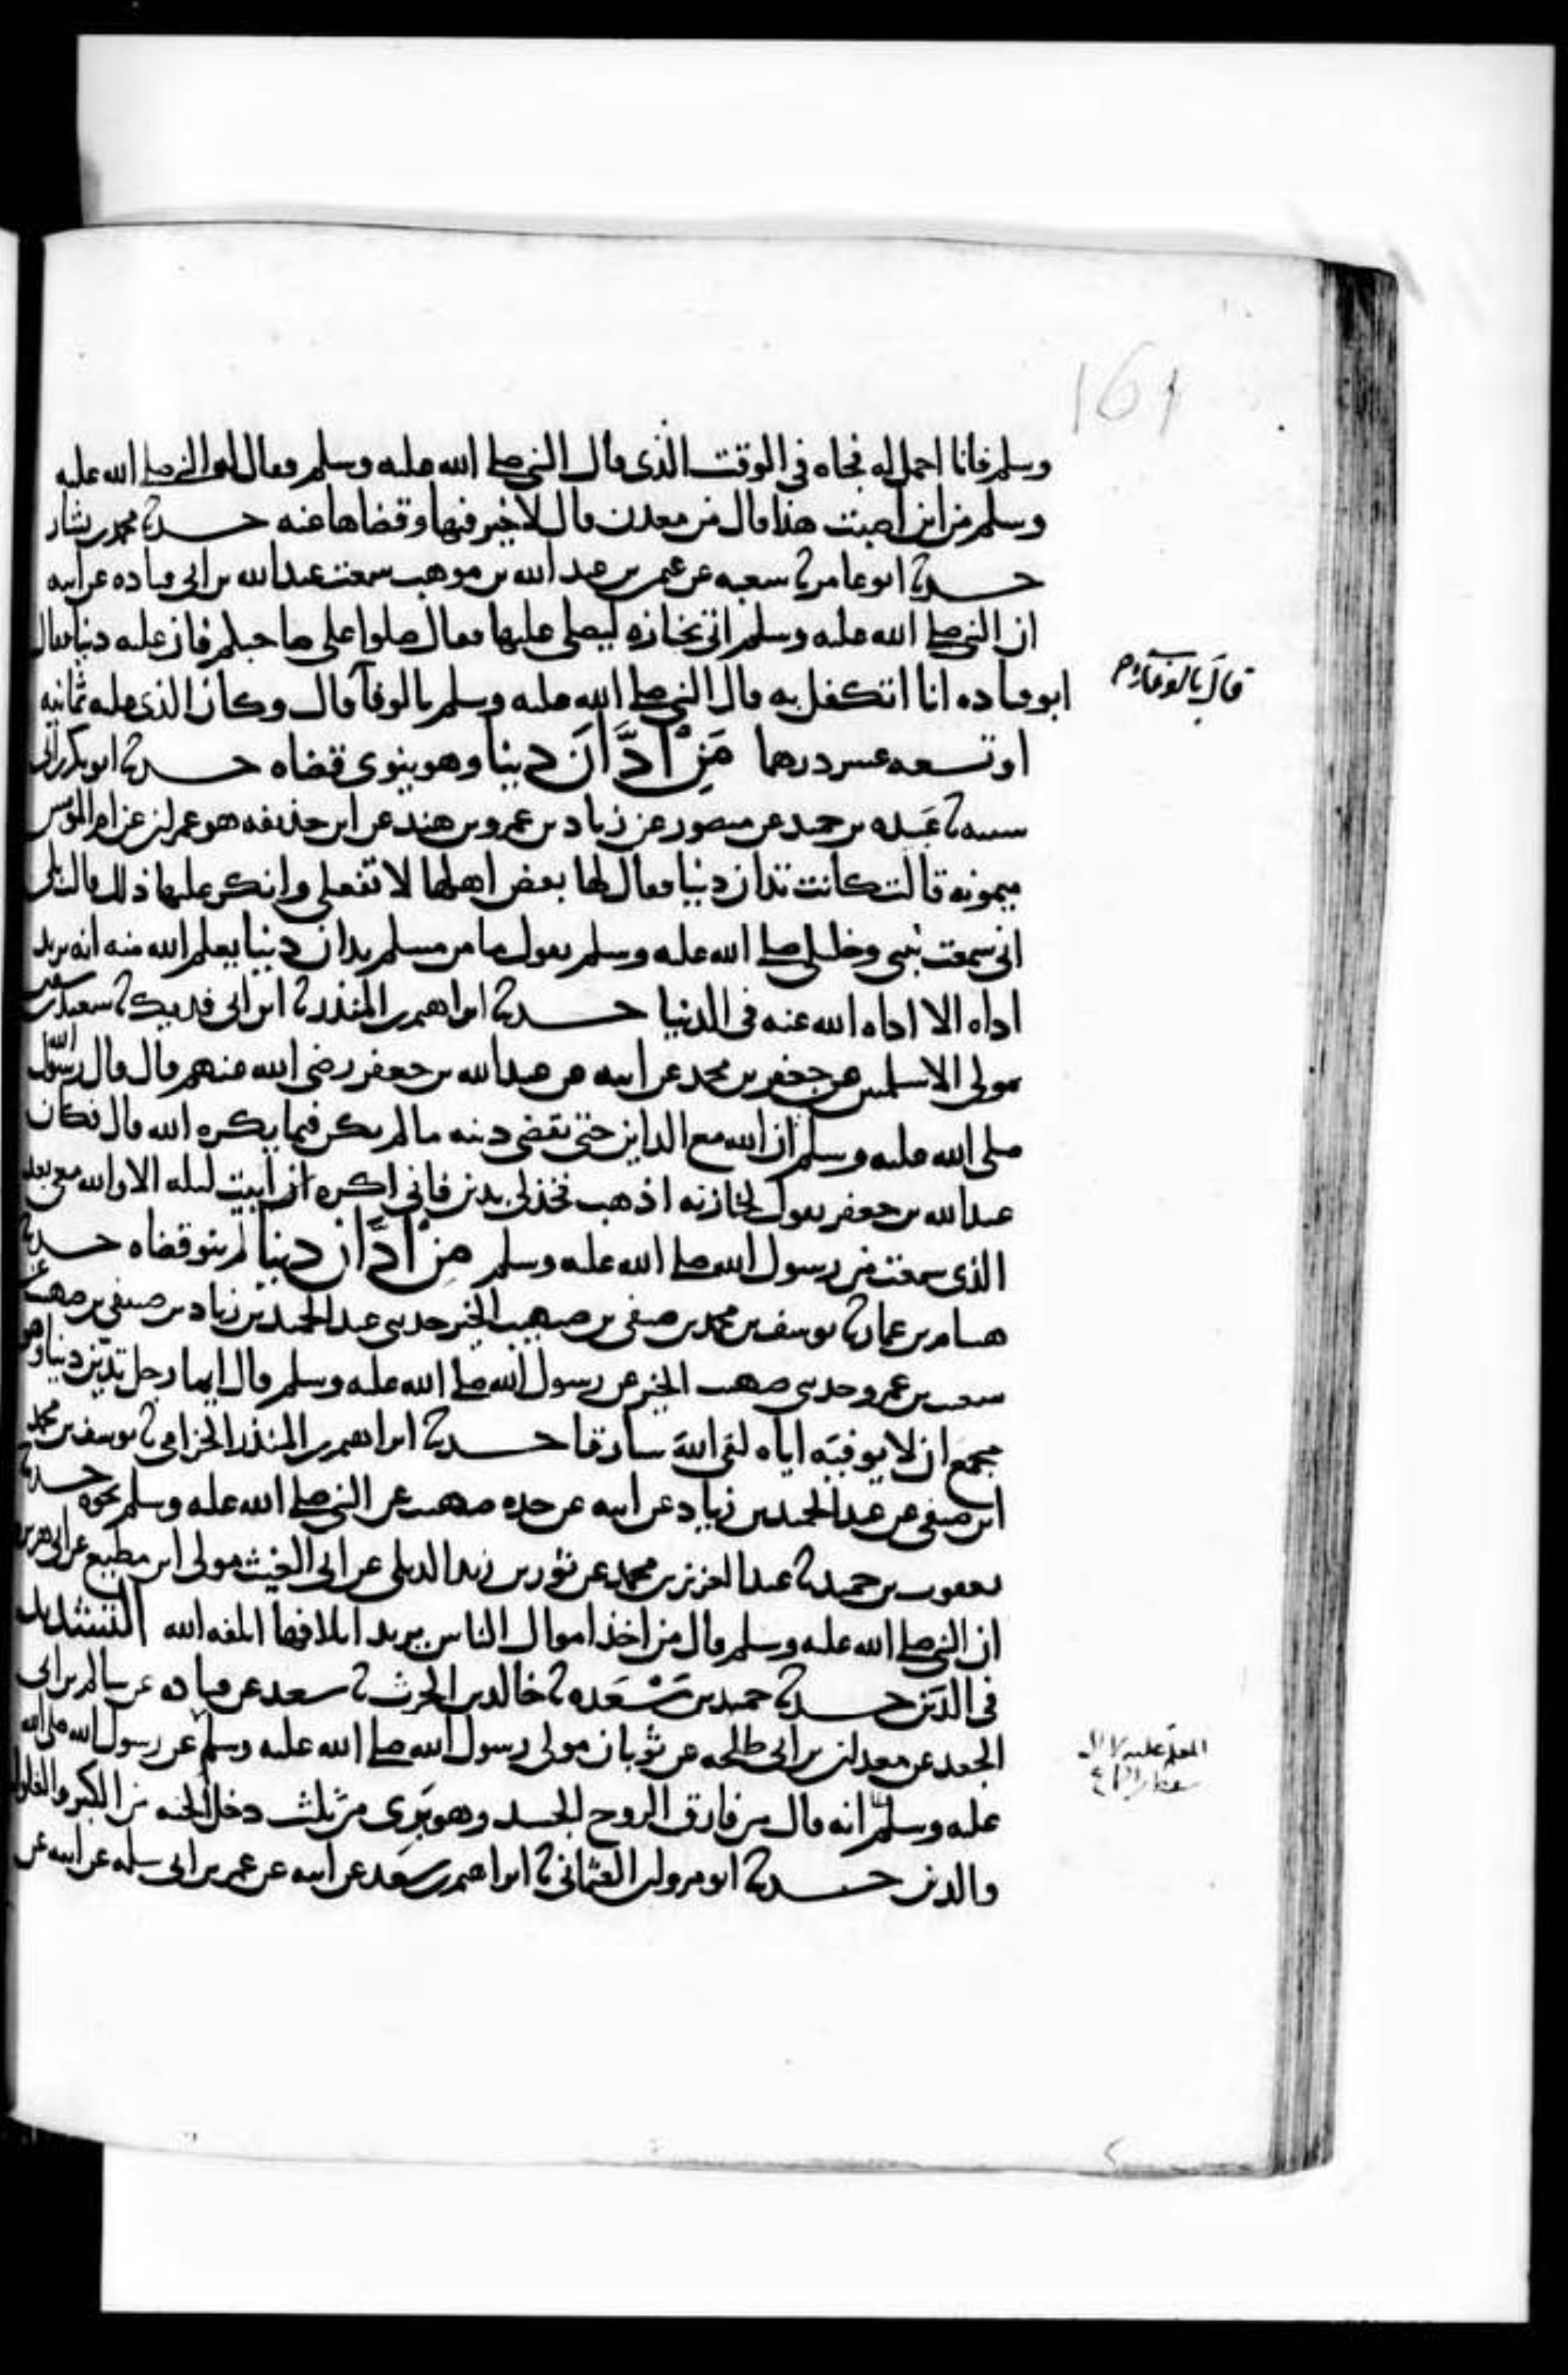 161
وسلم فانا احمل له فجاه في الوقت الذي قال النبي صلى الله عليه وسلم فقال له النبي صلى الله عليه
وسلم من اين اصبت هذا قال من معدن قال لا خير فيها وقضاها عنه حدثنا محمد بن بشار
حدثنا ابو عامر ثنا شعبه عن عثمن بن عبد الله بن موهب سمعت عبد الله بن ابي قتاده عن ابيه
ان النبي صلى الله عليه وسلم اتي بجنازه ليصلي عليها فقال صلوا على صاحبكم فان عليه دينا فقال
ابو قتاده انا اتكفل به قال النبي صلى الله عليه وسلم بالوفآ قال وكان الذي عليه ثمانيه
قال بالوفآء
او تسعه عشر درهما مَنْ اَدَّانَ دينا وهو ينوي قضاه حدثنا ابو بكر بن ابي
شيبه ثنا عَبيده بن حميد عن منصور عن زياد بن عمرو بن هند عن ابن حذيفه هو عمران عن ام المؤمنين
ميمونه قالت كانت تدان دينا فقال لها بعض اهلها لا تفعلي وانكر ذلك عليها قالت بلى
اني سمعت نبيي وخليلي صلى الله عليه وسلم يقول ما من مسلم يدان دينا يعلم الله منه انه يريد
اداه الا اداه الله عنه في الدنيا حدثنا ابراهيم بن المنذر ثنا ابن ابي فديك ثنا سعيد بن سفين
مولى الاسلميين عن جعفر بن محمد عن ابيه عن عبد الله بن جعفر رضي الله عنهم قال قال رسول الله
صلى الله عليه وسلم ان الله مع الداين حتى يقضي دينه ما لم يكن فيما يكره الله قال فكان
عبد الله بن جعفر يقول لخازنه اذهب فخذ لي بدين فاني اكره ان ابيت ليله الا والله معي بعد
الذي سمعت من رسول الله صلى الله عليه وسلم مِنْ اَدَّان دينا لم ينو قضاه حدثنا
هشام بن عمار ثنا يوسف بن محمد بن صيفي بن صهيب الخير حدثني عبد الحميد بن زياد بن صيفي بن صهيب عن
شعيب بن عمرو حدثني صهيب الخير عن رسول الله صلى الله عليه وسلم قال ايما رجل تديّن دينا وهو
مجمع ان لا يوفيه اياه لقي الله سارقا حدثنا ابراهيم بن المنذر الحزامي ثنا يوسف بن محمد
ابن صيفي عن عبد الحميد بن زياد عن ابيه عن جده صهيب عن النبي صلى الله عليه وسلم نحوه حدثنا
يعقوب بن حميد ثنا عبد العزيز بن محمد عن ثور بن زيد الديلي عن ابي الغيث مولى ابن مطيع عن ابي هريره
ان النبي صلى الله عليه وسلم قال من اخذ اموال الناس يريد اتلافها اتلفه الله التشديد
في الدَين حدثنا حميد بن مَسْعَده ثنا خالد بن الحرث ثنا سعيد عن قتاده عن سالم بن ابي
الجعد عن معدان بن ابي طلحه عن ثوبان مولى رسول الله صلى الله عليه وسلم عن رسول الله صلى الله
المعلم عليه
عليه وسلم انه قال من فارق الروح الجسد وهو بَرِى من ثلث دخل الجنه من الكبر والغلول
والدين حدثنا ابو مروان العثماني ثنا ابراهيم بن سَعد عن ابيه عن عمر بن ابي سلمه عن ابيه عن